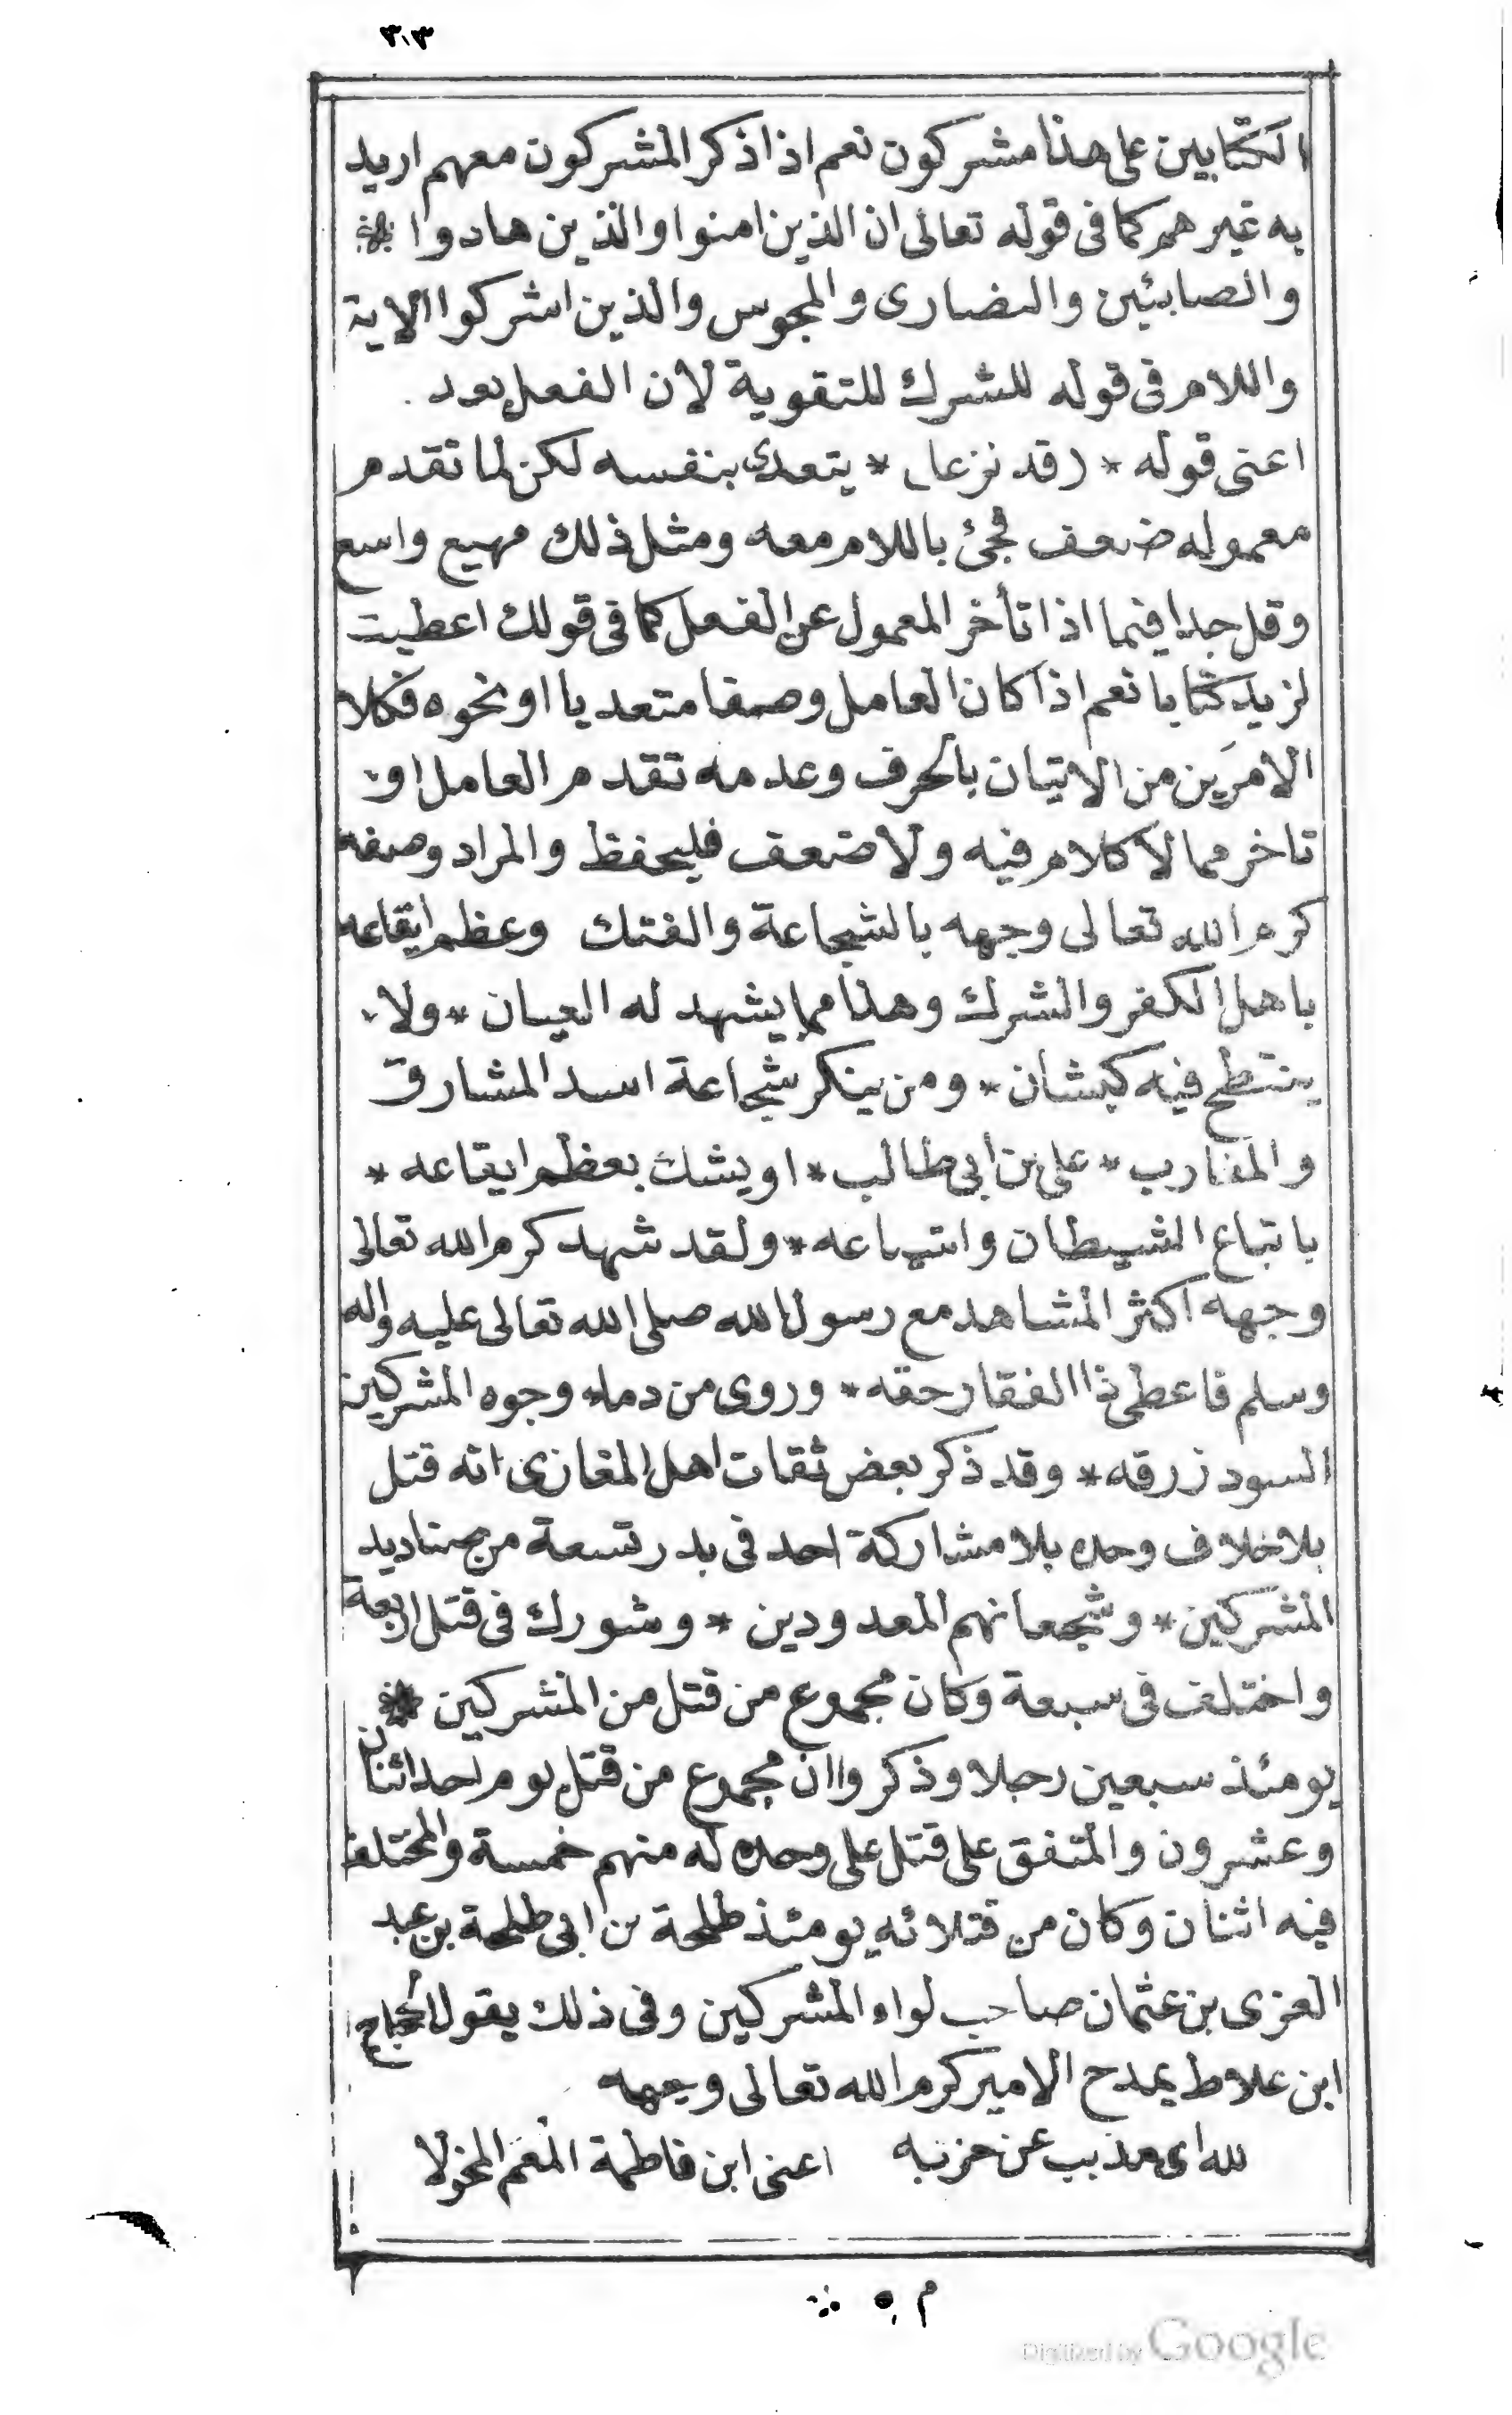 ٣٠٣
الكتابين على هذا مشركون نعم اذا ذكر المشركون معهم اريد
به غيرهم كما فى قوله تعالى ان الذين امنوا والذين هادوا *
والصابئين والنصارى والمجوس والذين اشركوا الاية
واللام فى قوله للشرك للتقوية لان الفعل بعد .
اعنى قوله * (قد نزعا * يتعدى بنفسه لكن لما تقدم
معموله ضعف فجئ باللام معه ومثل ذلك مهيع واسع
وقل جدا فيما اذا تأخر المعمول عن الفعل كما فى قولك اعطيت
لزيد كتابا نعم اذا كان العامل وصفا متعديا او نحوه فكلا
الامرين من الاتيان بالحرف وعدمه تقدم العامل او
تاخر مما لا كلام فيه ولا ضعف فليحفظ والمراد وصفه
كرم الله تعالى وجهه بالشجاعة والفتك وعظم ايقاعه
باهل الكفر والشرك وهذا مما يشهد له العيان * ولا
ينتطح فيه كبشان * ومن ينكر شجاعة اسد المشارق
والمغارب * على بن ابى طالب * او يشك بعظم ايقاعه *
باتباع الشيطان واتباعه * ولقد شهد كرم الله تعالى
وجهه اكثر المشاهد مع رسول الله صلى الله تعالى عليه واله
وسلم فاعطى ذا الفقار حقه * وروى من دماء وجوه المشركين
السود زرقه * وقد ذكر بعض ثقات اهل المغازى انه قتل
بلا خلاف وحده بلا مشاركة احد فى بدر تسعة من صناديد
المشركين * وشجعانهم المعدودين * وشورك فى قتل اربعة
واختلف فى سبعة وكان مجموع من قتل من المشركين *
يومئذ سبعين رجلا وذكروا ان مجموع من قتل يوم احد اثنان
وعشرون والمتفق على قتل على وحده له منهم خمسة والمختلف
فيه اثنان وكان من قتلائه يومئذ طلحة بن ابى طلحة بن عبد
العزى بن عثمان صاحب لواء المشركين وفى ذلك يقول الحجاج
ابن علاط يمدح الامير كرم الله تعالى وجهه
لله اى مذبب عن حزبه اعنى ابن فاطمة المعم المخولا
م ه
Digitized by Google